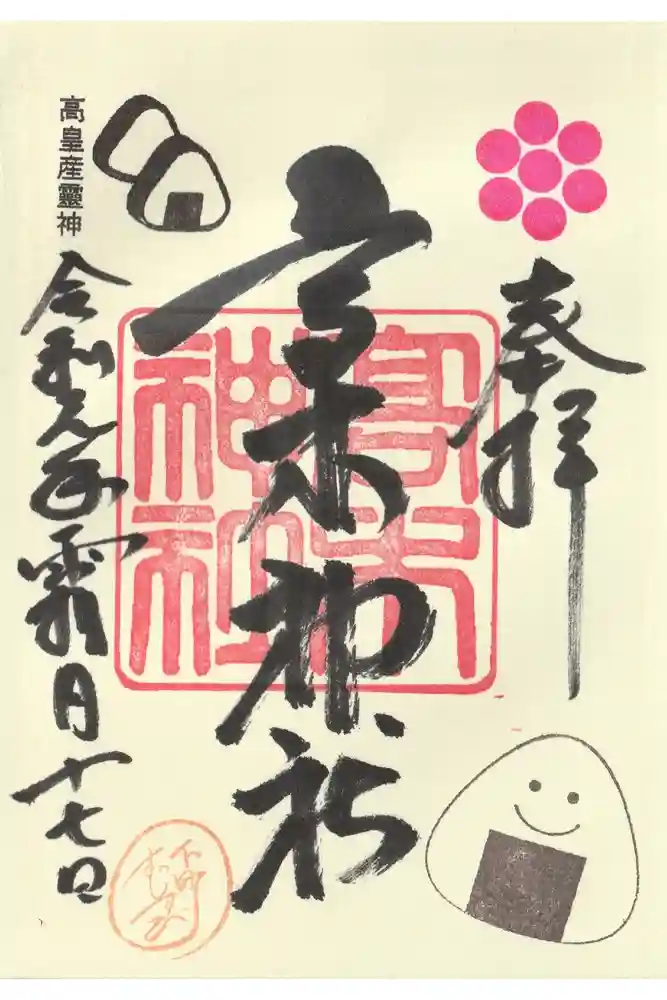 奉拝
高木神社
高木
神社
高皇産靈神
令和元年霜月十七日